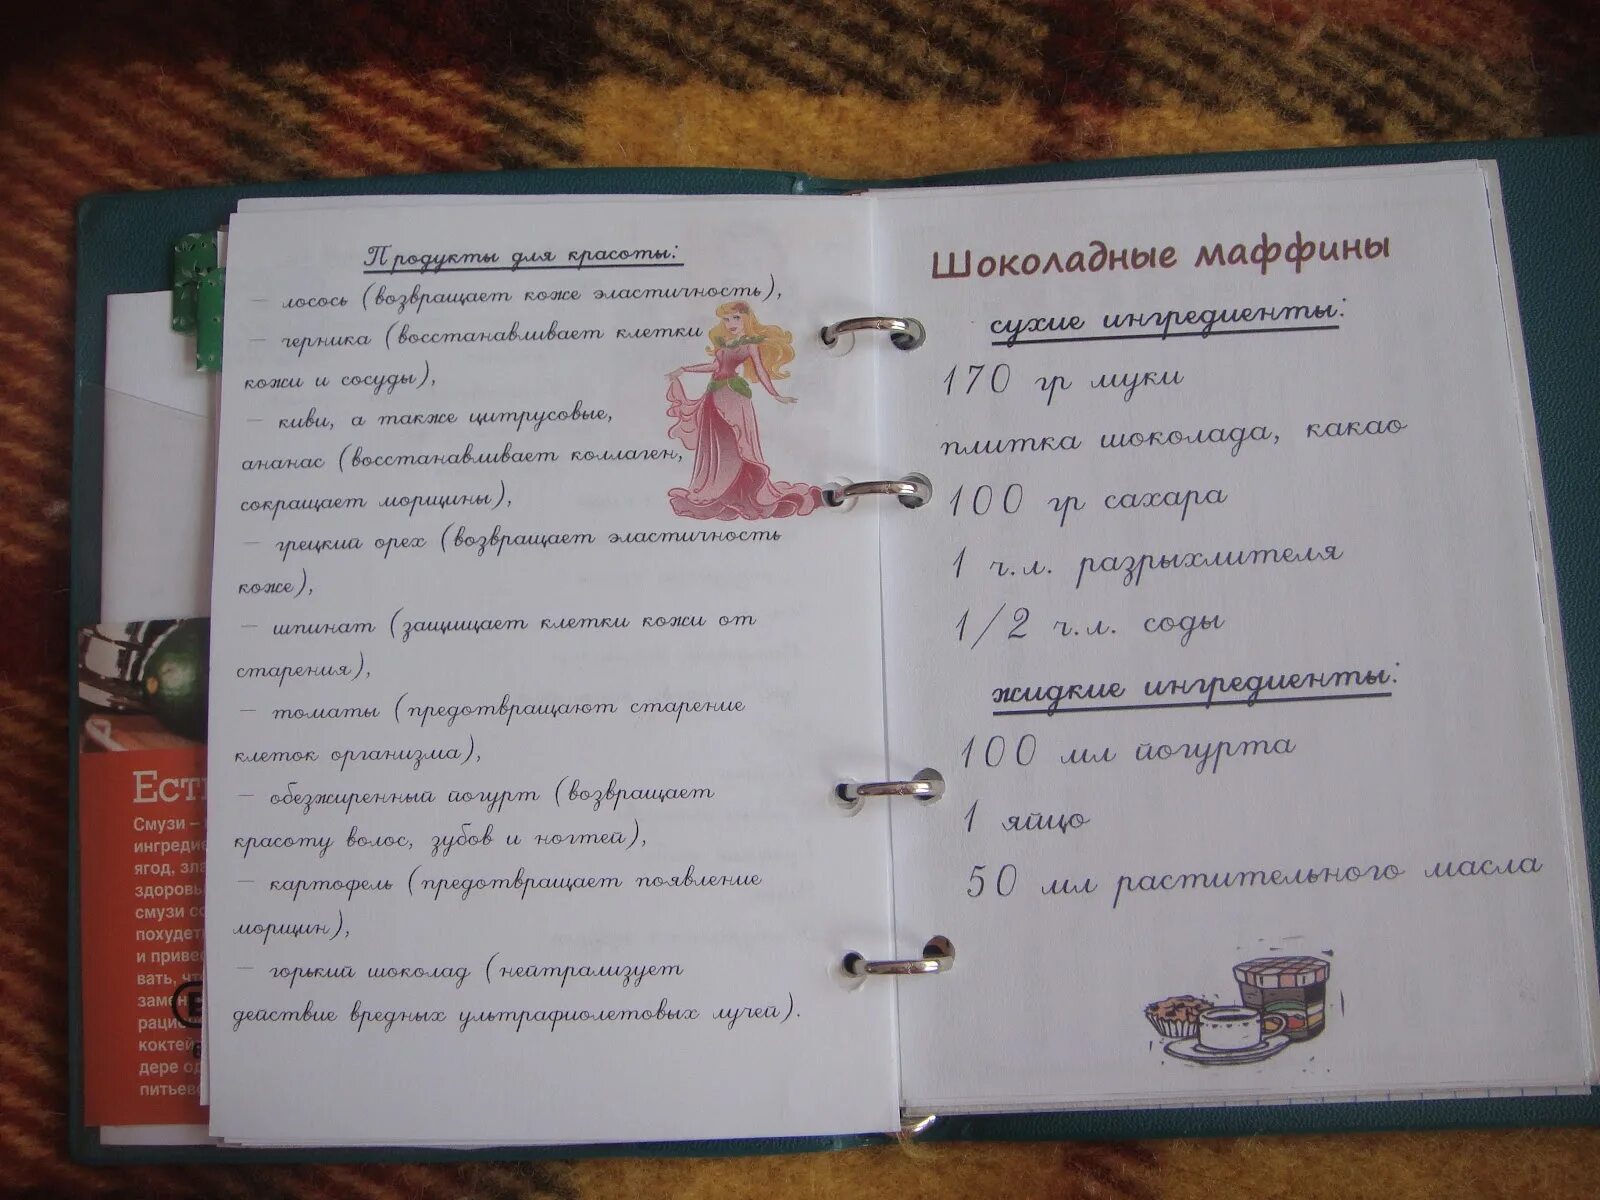 Продукты для красоты:
– лосось (возвращает коже эластичность),
– черника (восстанавливает клетки
кожи и сосуды),
– киви, а также цитрусовые,
ананас (восстанавливает коллаген,
сокращает морщины),
– грецкий орех (возвращает эластичность
коже),
– шпинат (защищает клетки кожи от
старения),
– томаты (предотвращают старение
клеток организма),
– обезжиренный йогурт (возвращает
красоту волос, зубов и ногтей),
– картофель (предотвращает появление
морщин),
– горький шоколад (нейтрализует
действие вредных ультрафиолетовых лучей).
Шоколадные маффины
сухие ингредиенты:
170 гр муки
плитка шоколада, какао
100 гр сахара
1 ч.л. разрыхлителя
1/2 ч.л. соды
жидкие ингредиенты:
100 мл йогурта
1 яйцо
50 мл растительного масла
Смузи –
ягод,
смузи
вать,